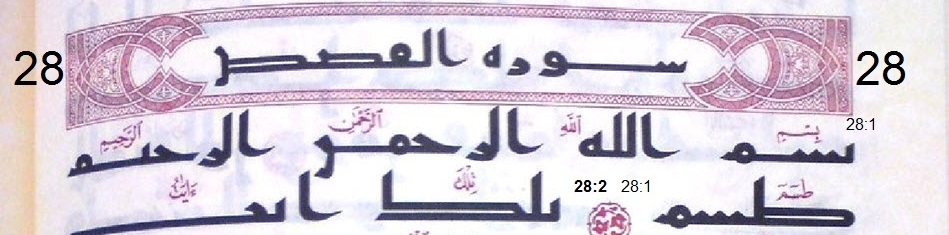 28 سوره القصص 28
بسم الله الرحمن الرحيم 28:1
بِسْمِ ٱللَّهِ ٱلرَّحْمَٰنِ ٱلرَّحِيمِ
طسم 28:1 28:2 تلك ايت
طسٓمٓ تِلْكَ ءَايَٰتُ